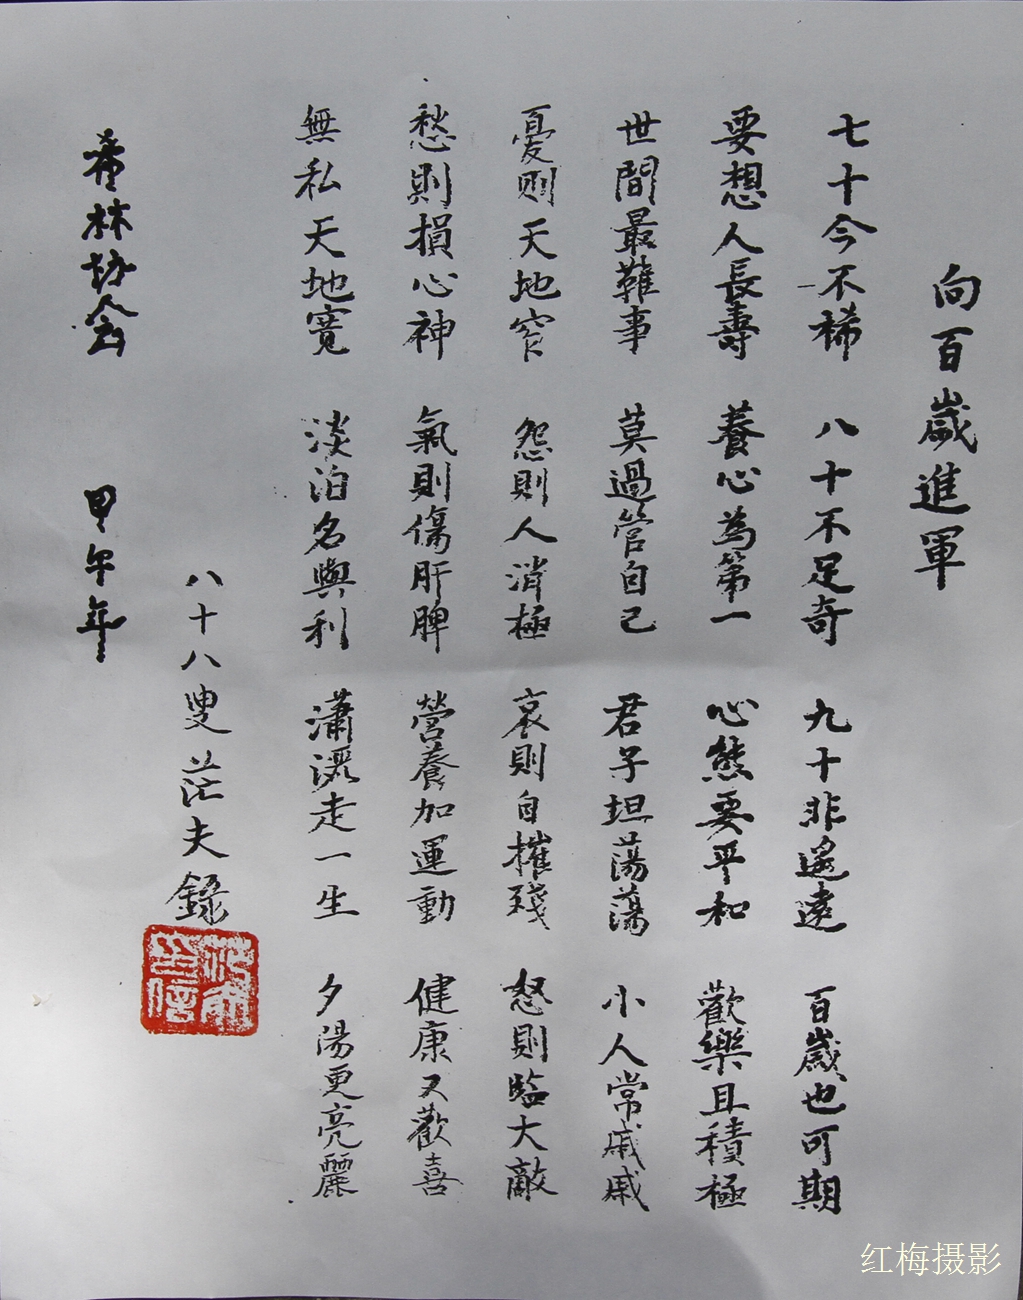 向百歲進軍
七十今不稀 八十不足奇 九十非遙遠 百歲也可期
要想人長壽 養心為第一 心態要平和 歡樂且積極
世間最難事 莫過管自己 君子坦蕩蕩 小人常戚戚
憂則天地窄 怨則人消極 哀則自摧殘 怒則臨大敵
愁則損心神 氣則傷肝脾 營養加運動 健康又歡喜
無私天地寬 淡泊名與利 瀟灑走一生 夕陽更亮麗
八十八叟茫夫錄
希林协会 甲午年
红梅摄影